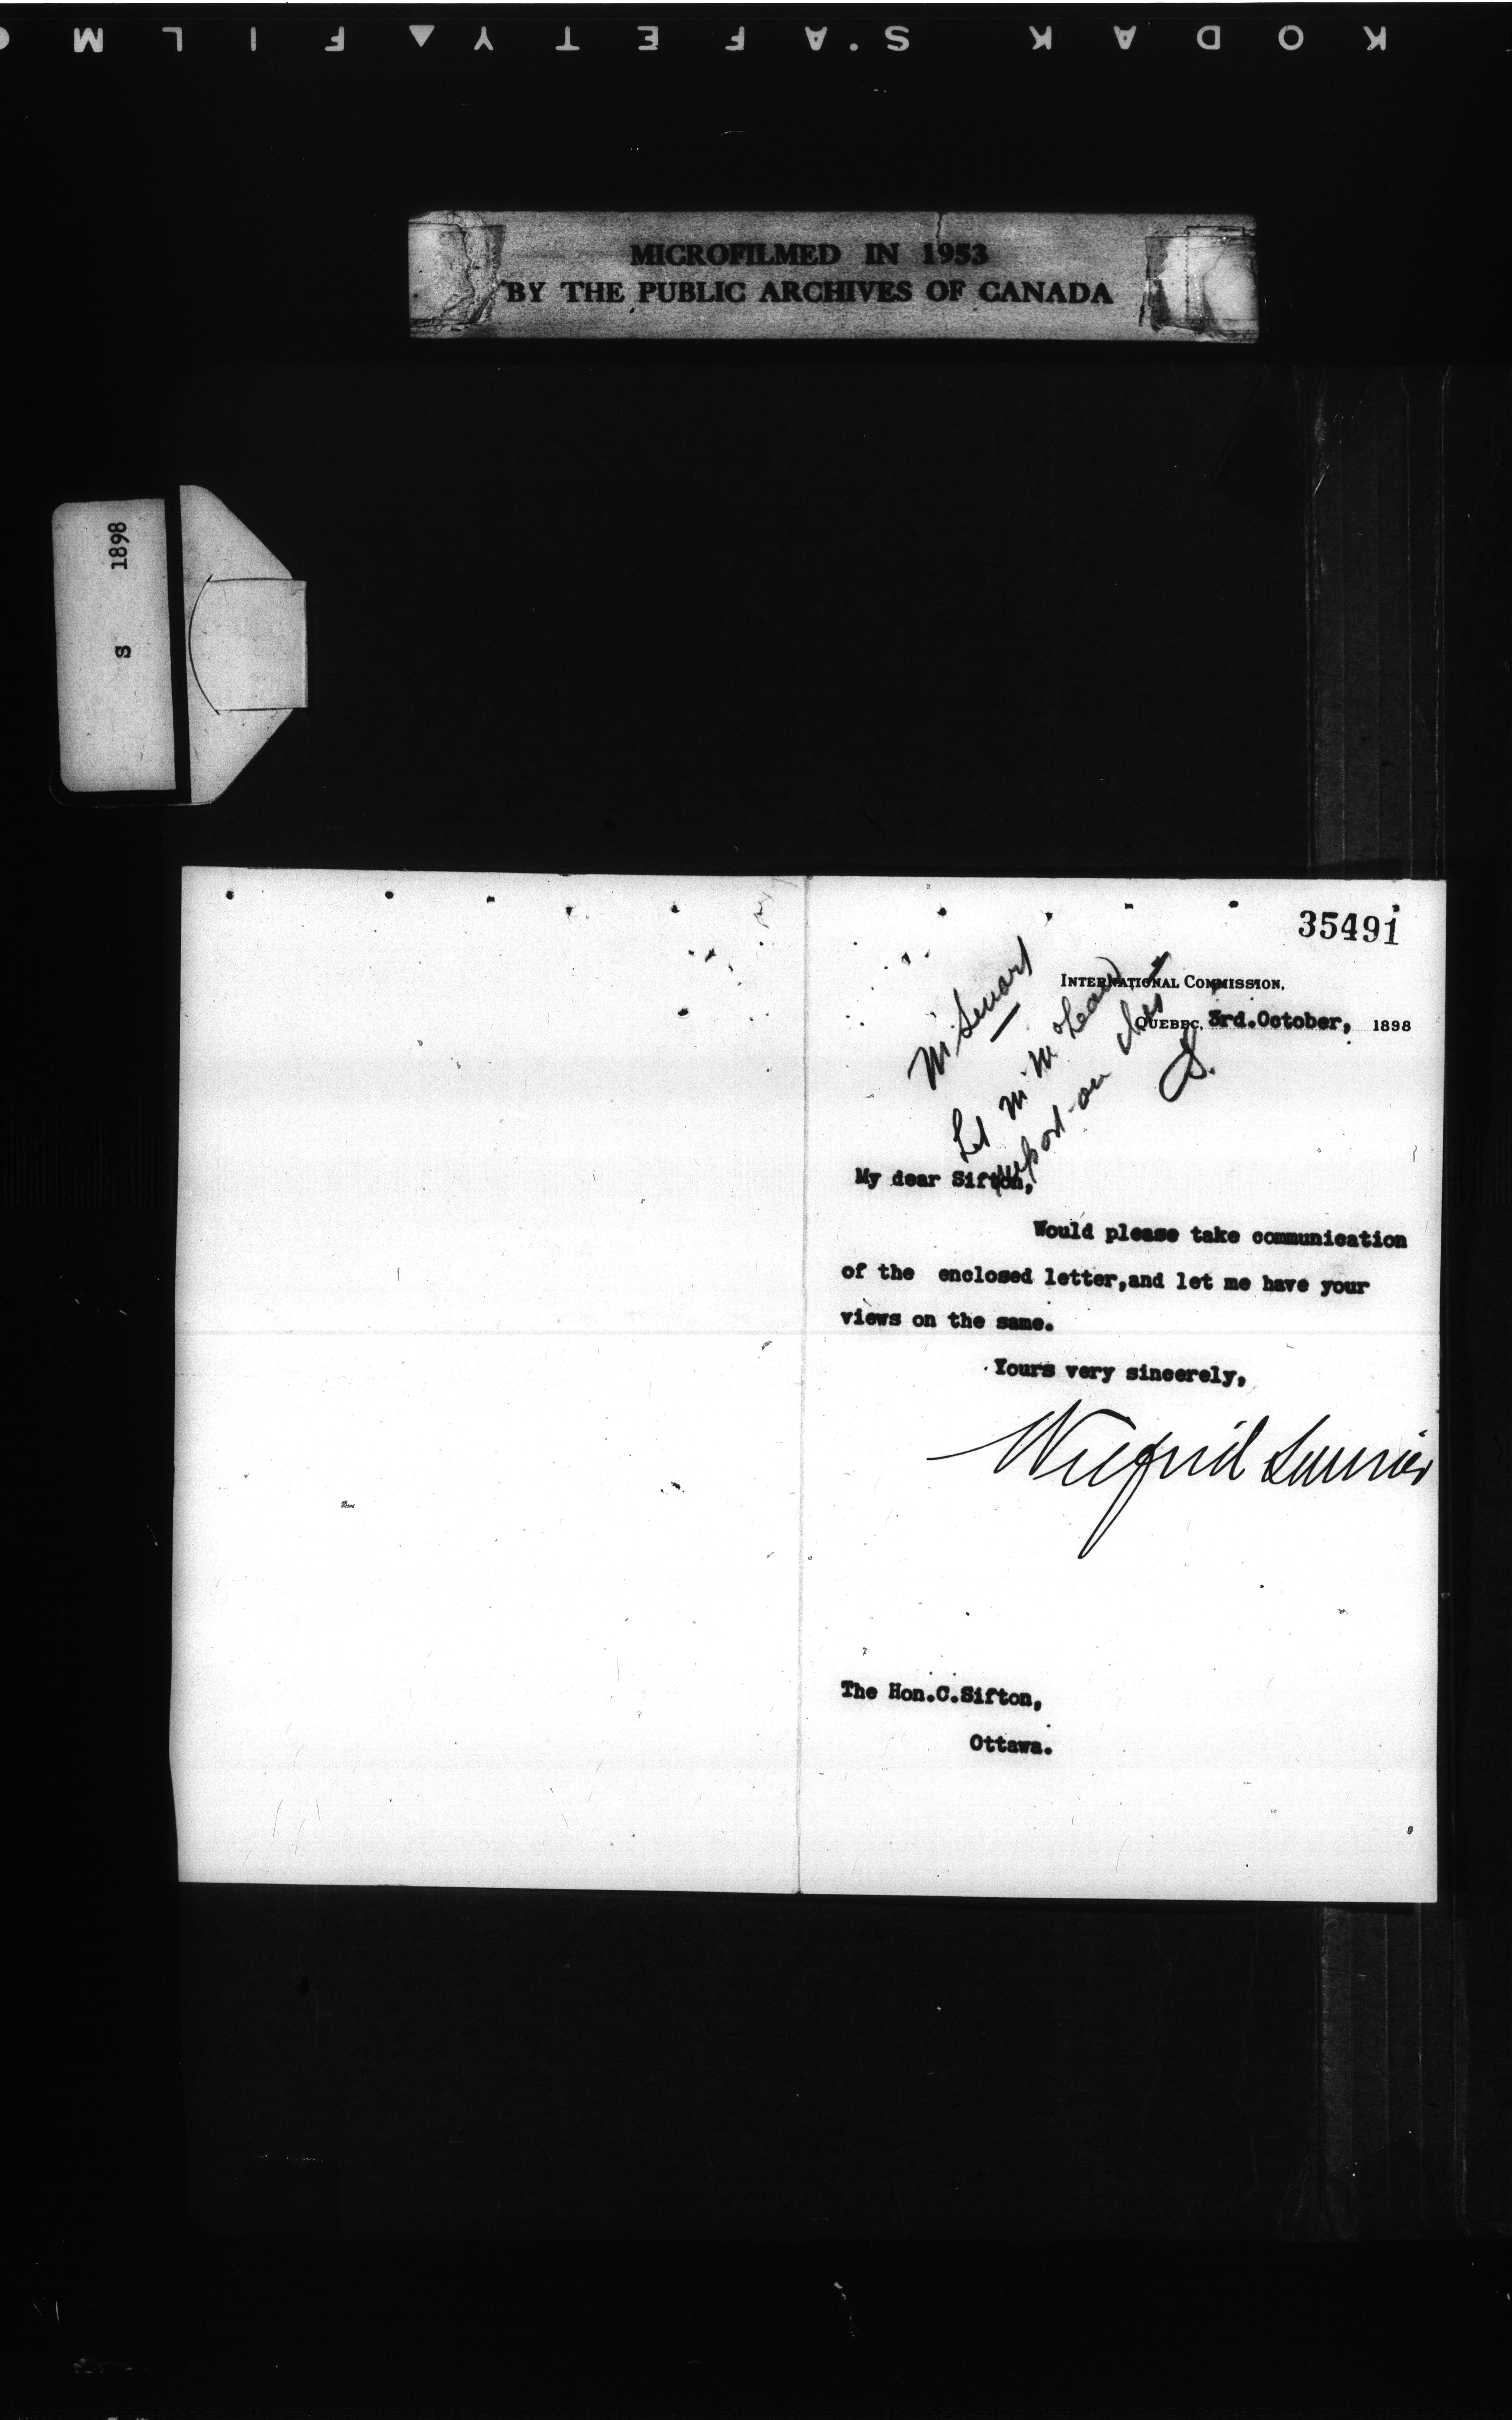 KODAK S.A F E T Y ▲ F I L M
MICROFILMED IN 1953
BY THE PUBLIC ARCHIVES OF CANADA
S 1898
35491
INTERNATIONAL COMMISSION,
QUEBEC, 3rd.October, 1898
Mr Smart
Let Mr McLean
report on this
S.
My dear Sifton,
Would please take communication
of the enclosed letter,and let me have your
views on the same.
Yours very sincerely,
Wilfrid Laurier
The Hon.C.Sifton,
Ottawa.